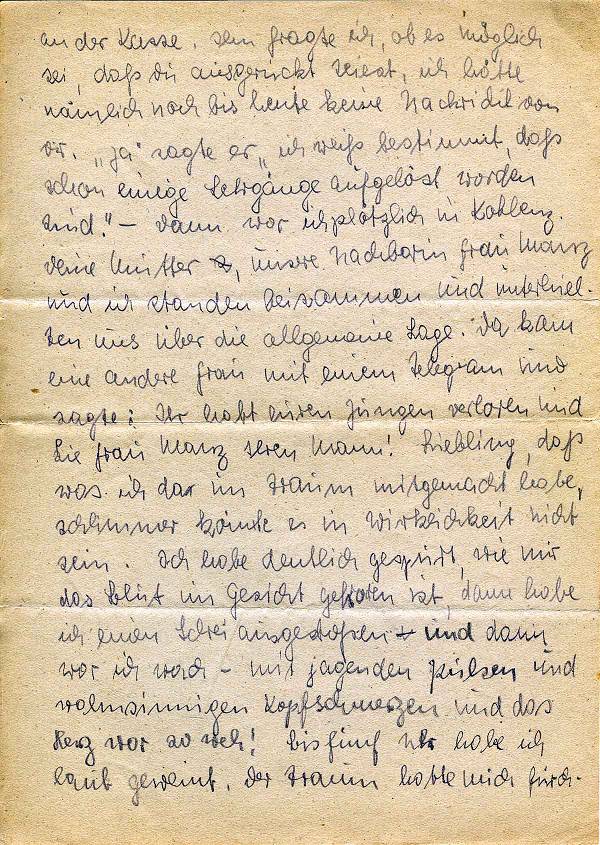 an der Kasse. Den fragte ich, ob es möglich
sei, daß du ausgerückt seiest, ich hätte
nämlich noch bis heute keine Nachricht von
dir. „Ja" sagte er „ich weiß bestimmt, daß
schon einige Lehrgänge aufgelöst worden
sind." – Dann war ich plötzlich in Koblenz.
Deine Mutter, unsere Nachbarin Frau Manz
und ich standen beisammen und unterhiel-
ten uns über die allgemeine Lage. Da kam
eine andere Frau mit einem Telegram und
sagte: Ihr habt euren Jungen verloren und
Sie Frau Manz Ihren Mann! Liebling, daß
was ich da im Traum mitgemacht habe,
schlimmer könnte es in Wirklichkeit nicht
sein. Ich habe deutlich gespürt, wie mir
das Blut im Gesicht gefroren ist, dann habe
ich einen Schrei ausgestoßen und dann
war ich wach – mit jagenden Pulsen und
wahnsinnigen Kopfschmerzen und das
Herz war so weh! Bis fünf Uhr habe ich
laut geweint. Der Traum hatte mich fürch-